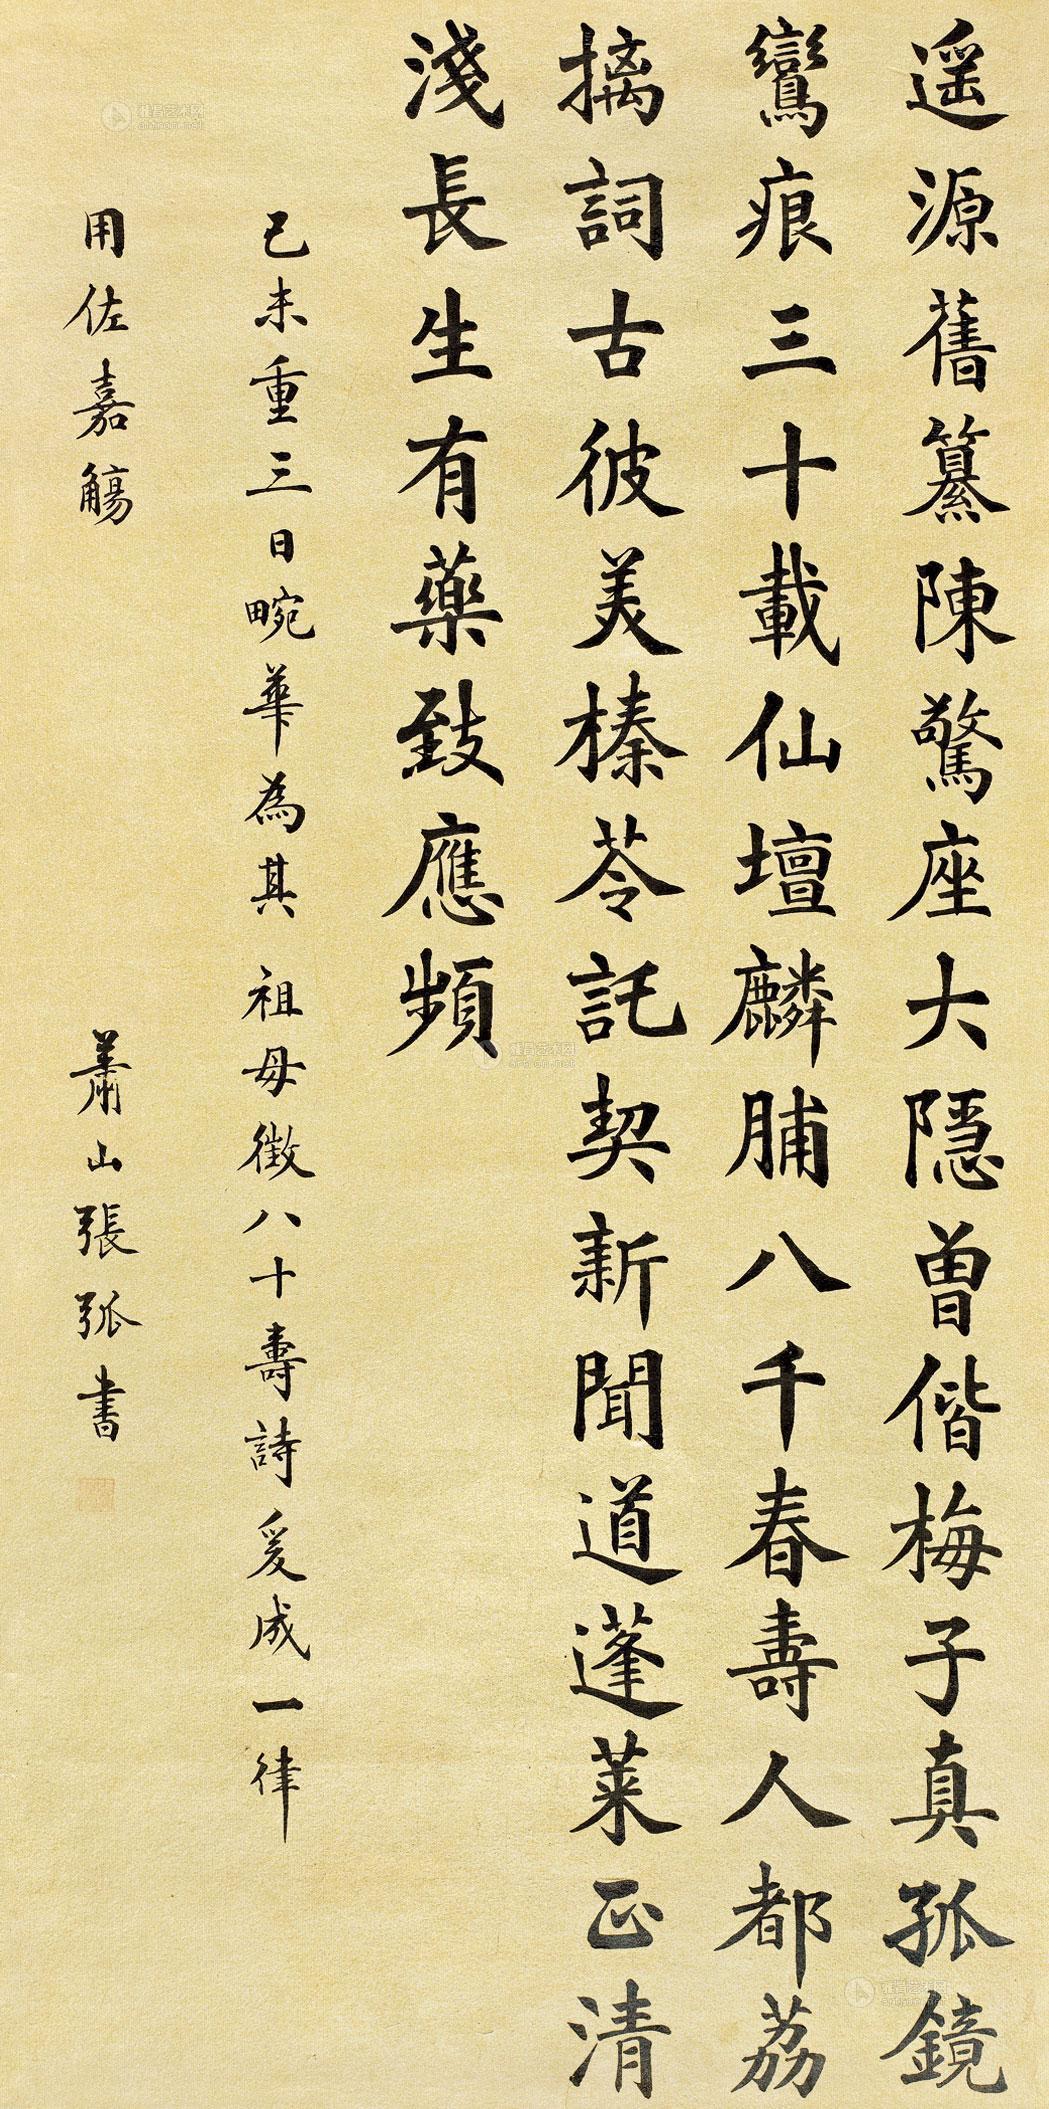 遥源舊纂陳驚座大隱曾偕梅子真孤鏡
鸞痕三十載仙壇麟脯八千春壽人都荔
摛詞古彼美榛苓託契新聞道蓬萊正清
淺長生有藥致應頻
己未重三日畹華為其祖母徵八十壽詩爰成一律
用佐嘉觴
蕭山張弧書